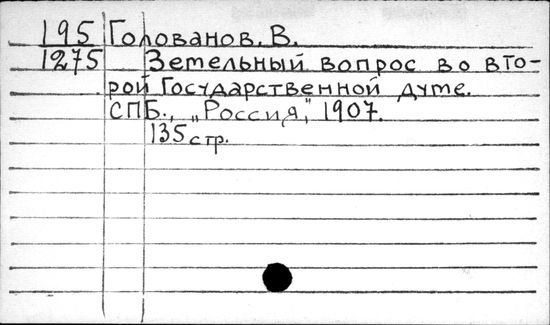 195 Голованов. В.
1275 Земельный вопрос во вто-
рой Государственной думе.
СПБ., „Россия", 1907.
135 стр.